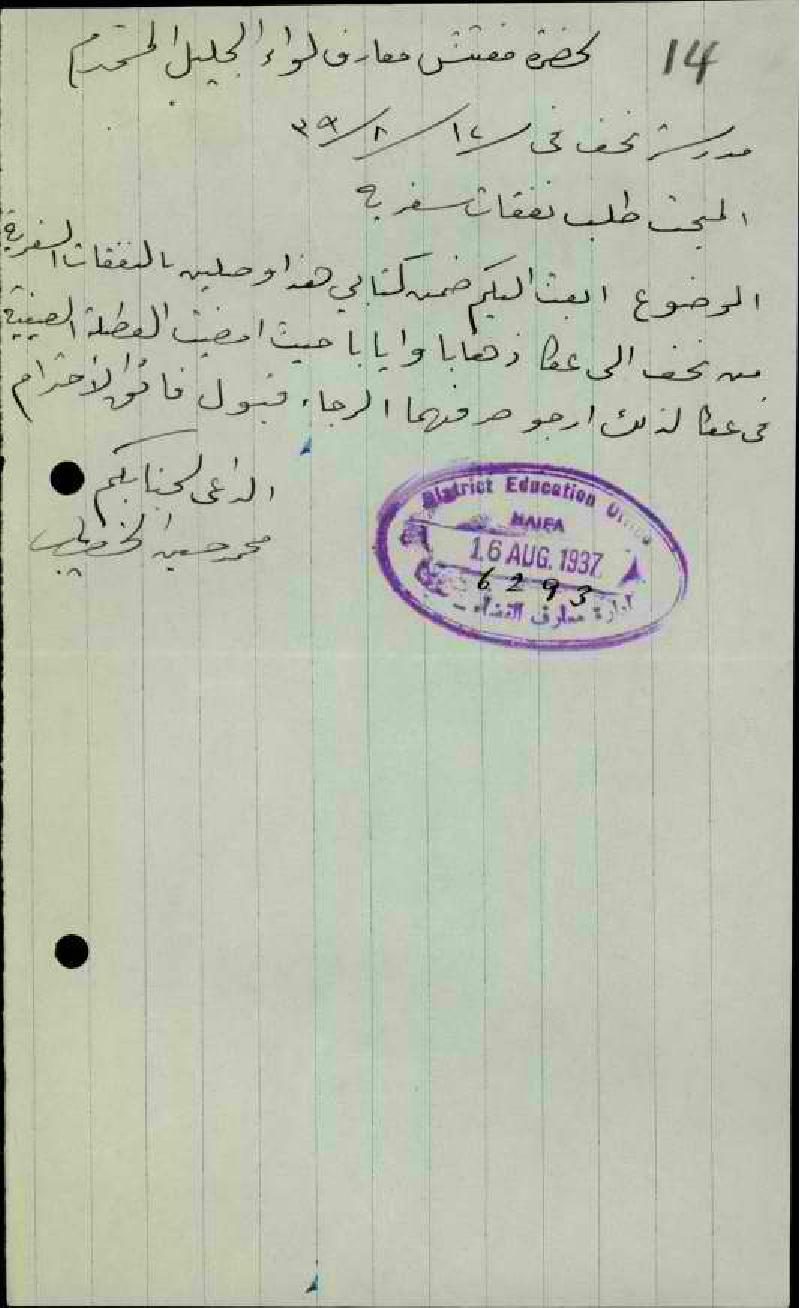 14
لحضرة مفتش معارف لواء الجليل المحترم
مدرسة نحف في ١٤/٨/٣٩
المبحث طلب نفقات سفرية
الموضوع ابعث اليكم ضمن كتابي هذا وصلين بالنفقات السفرية
من نحف الى عكا ذهابا وايابا حيث امضيت العطلة الصيفية
في عكا لذلك ارجو صرفهما الرجاء قبول فائق الاحترام
الداعي لجنابكم
محمد حسين الخطيب
District Education
HAIFA
16 AUG. 1937
6293
ادارة معارف القضاء